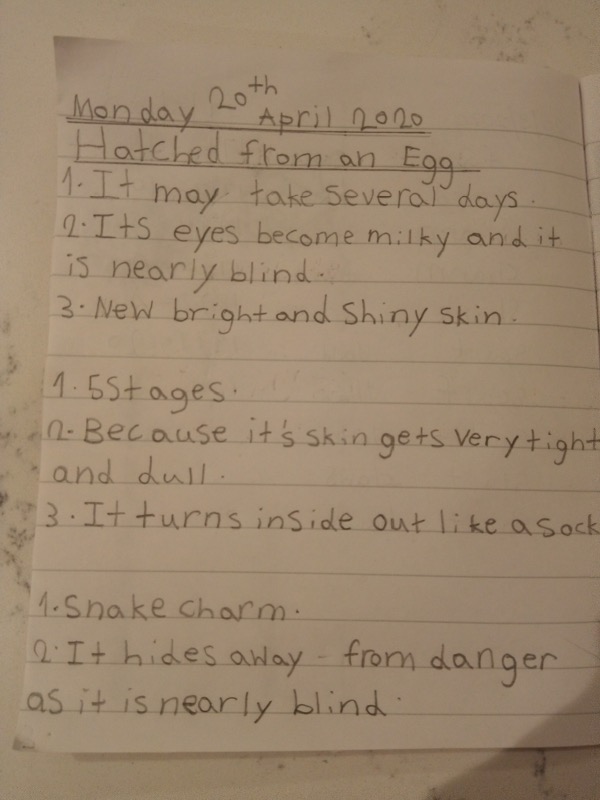 Monday 20th April 2020
Hatched from an Egg
1. It may take several days.
2. Its eyes become milky and it
is nearly blind.
3. New bright and Shiny skin.
1. 5 Stages.
2. Because it's skin gets very tight
and dull.
3. It turns inside out like a sock
1. Snake charm.
2. It hides away - from danger
as it is nearly blind.